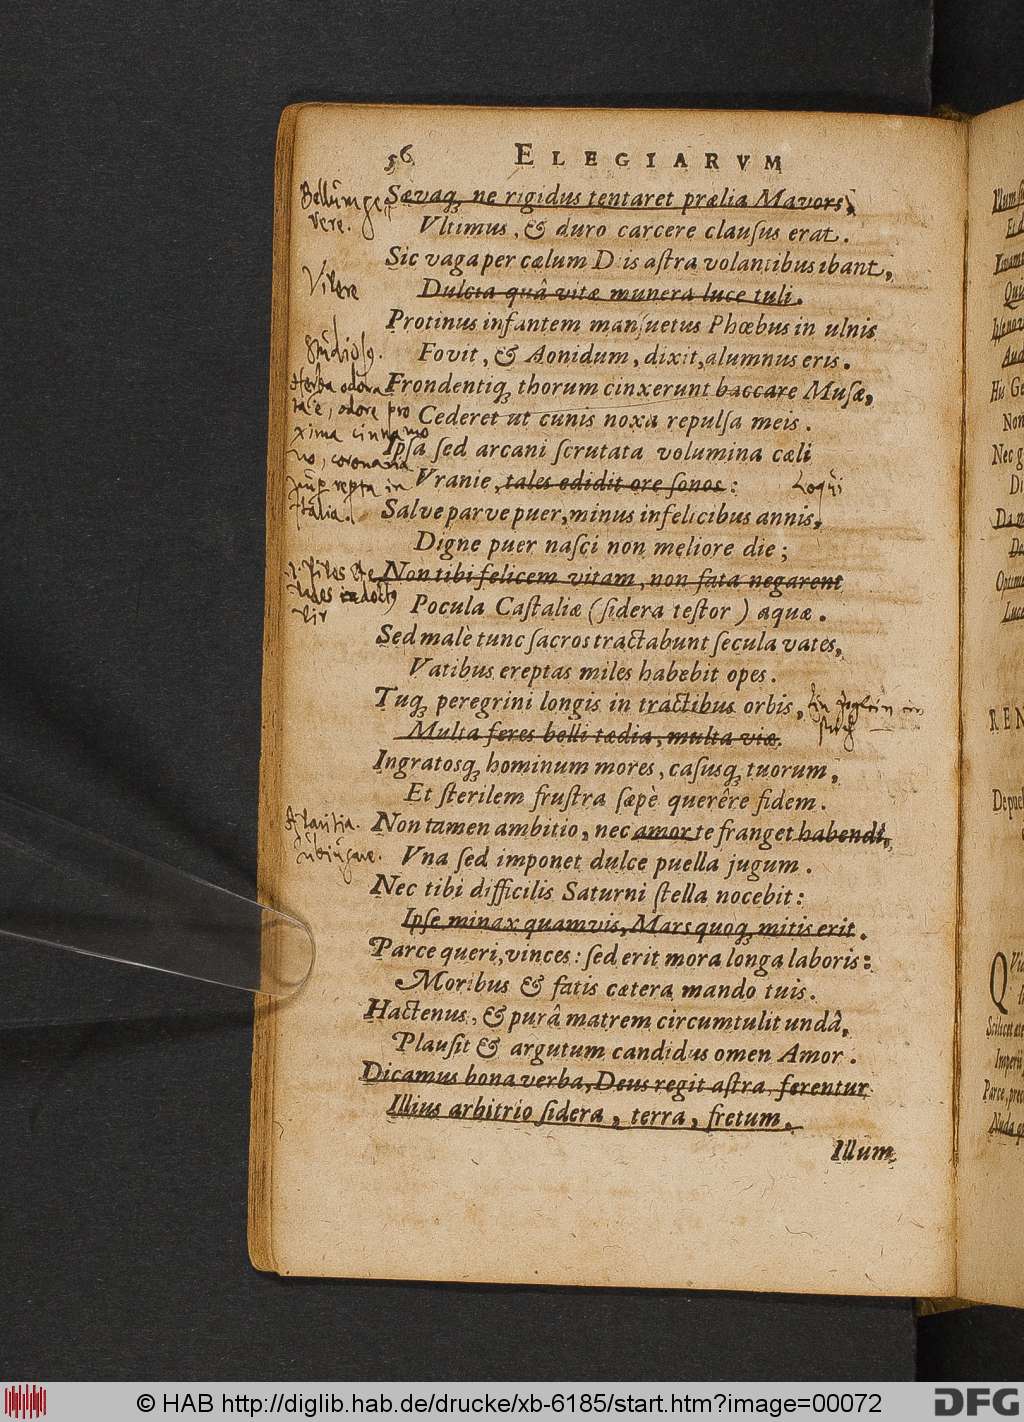 56 ELEGIARVM
Sævaq́; ne rigidus tentaret prælia Mavors,
Vltimus, & duro carcere clausus erat.
Sic vaga per cælum Diis astra volantibus ibant,
Dulcia quâ vitæ munera luce tuli.
Protinus infantem mansuetus Phœbus in ulnis
Fovit, & Aonidum, dixit, alumnus eris.
Frondentiq́; thorum cinxerunt baccare Musæ,
Cederet ut cunis noxa repulsa meis.
Ipsa sed arcani scrutata volumina cæli
Vranie, tales edidit ore sonos:
Salve parve puer, minus infelicibus annis,
Digne puer nasci non meliore die;
Non tibi felicem vitam, non fata negarent
Pocula Castaliæ (sidera testor) aquæ.
Sed malè tunc sacros tractabunt secula vates,
Vatibus ereptas miles habebit opes.
Tuq́; peregrini longis in tractibus orbis,
Multa feres belli tædia, multa viæ.
Ingratosq́; hominum mores, casusq́; tuorum,
Et sterilem frustra sæpè querêre fidem.
Non tamen ambitio, nec amor te franget habendi,
Vna sed imponet dulce puella jugum.
Nec tibi difficilis Saturni stella nocebit:
Ipse minax quamvis, Mars quoq́; mitis erit.
Parce queri, vinces: sed erit mora longa laboris:
Moribus & fatis cætera mando tuis.
Hactenus, & purâ matrem circumtulit undâ,
Plausit & argutum candidus omen Amor.
Dicamus bona verba, Deus regit astra, ferentur
Illius arbitrio sidera, terra, fretum.
Illum
Bellum ge
rere.
Vivere
Studiosq.
Herba odora
ta e, odore pro
xima cinnamo
no, coronaria
repta in
Italia.
Loqui
vir
Avaritia
ubiq́ue.
© HAB http://diglib.hab.de/drucke/xb-6185/start.htm?image=00072
DFG